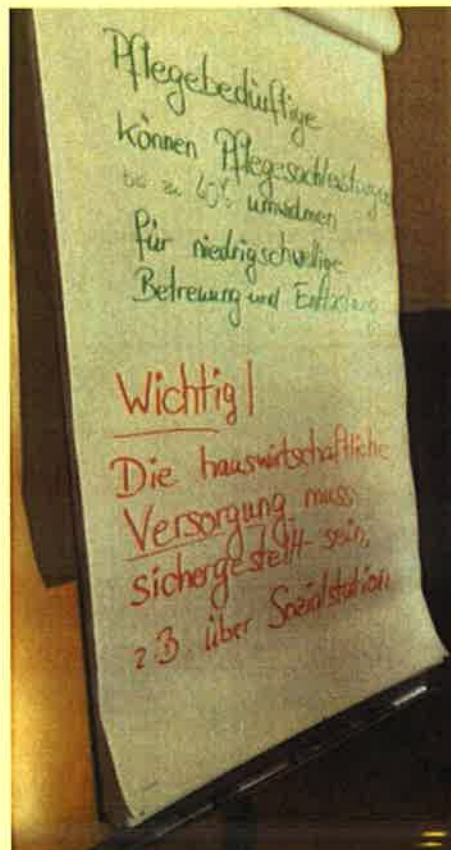 Pflegebedürftige
können Pflegesachleistungen
bis zu 40% umwidmen
für niedrigschwellige
Betreuung und Entlastung
Wichtig!
Die hauswirtschaftliche
Versorgung muss
sichergestellt sein,
z.B. über Sozialstation